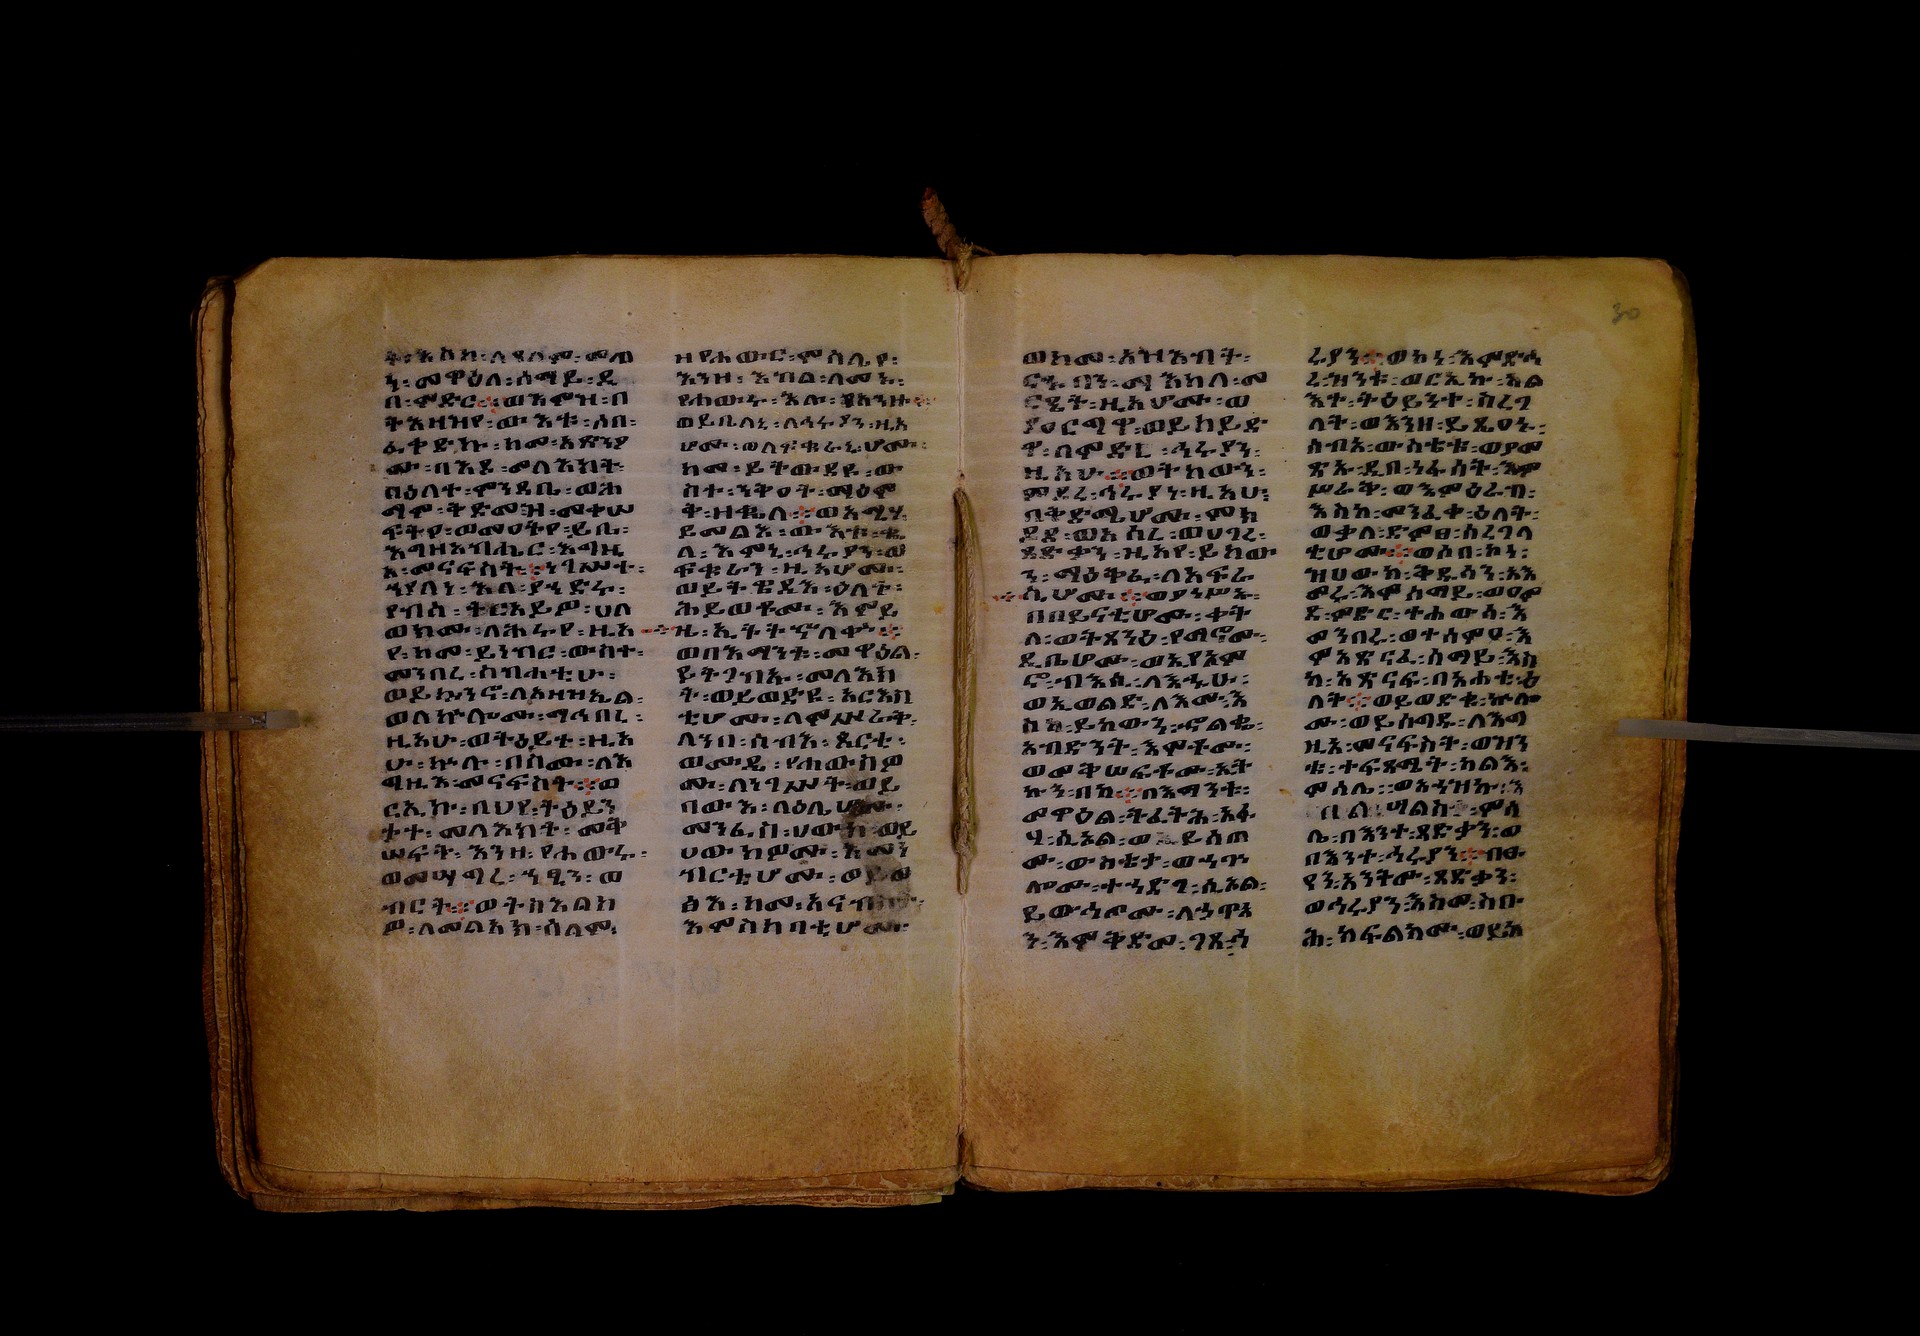 ት፡እስከ፡ለዓለም፡መጠ
ነ፡መዋዕለ፡ሰማይ፡ዲ
በ፡ምድር፡ወእምዝ፡በ
ትእዛዝየ፡ውእቱ፡ሶበ፡
ፈቀድኩ፡ከመ፡አጽንዖ
ሙ፡በእደ፡መላእክት
በዕለተ፡ምንዳቤ፡ወሕ
ማም፡ቅድመ፡ዝ፡መቀሠ
ፍትየ፡ወመዐትየ፡ይቤ፡
እግዚአብሔር፡እግዚ
አ፡መናፍስት፡ነገሥት፡
ኀያላነ፡እለ፡ያኀድሩ፡
የብሰ፡ትርአይዎ፡ሀለ
ወክሙ፡ለኅሩየ፡ዚአ
የ፡ከመ፡ይነብር፡ውስተ፡
መንበረ፡ስብሐቲሁ፡
ወይኴንኖ፡ለአዛዝኤል፡
ወለኵሎሙ፡ማኅበረ፡
ዚአሁ፡ወትዕይተ፡ዚአ
ሁ፡ኵሉ፡በስሙ፡ለእ
ግዚእ፡መናፍስት፡ወ
ርኢኩ፡በህየ፡ትዕይን
ተ፡መላእክት፡መቅ
ሠፍት፡እንዘ፡የሐውሩ፡
ወመሣግረ፡ኀፂን፡ወ
ብርት፡ወተስእልክ
ዎ፡ለመልአክ፡ሰላም፡
ዘየሐውር፡ምስሌየ፡
እንዘ፡እብል፡ለመኑ፡
የሐውሩ፡እሉ፡እለ፡እንዘ፡
ወይቤለኒ፡ለኅሩያን፡ዚአ
ሆሙ፡ወለፍቁራኒሆሙ፡
ከመ፡ይትወደዩ፡ው
ስተ፡ንቅዐት፡ማዕም
ት፡ዘቈላ፡ወአሜሃ
ይመልእ፡ውእቱ፡ቈ
ላ፡እምኒ፡ኅሩያን፡ወ
ፍቁራን፡ዚአሆሙ፡
ወይትዌዳእ፡ዕለት፡
ሕይወቶሙ፡እምይ
ዜ፡ኢትትኆለቍ፡
ወበእማንቱ፡መዋዕል፡
ይትጋብኡ፡መላእክ
ት፡ወይወድዩ፡አርእስ
ቲሆሙ፡ለምሥራቅ፡
ለኀበ፡ሰብአ፡ጰርቴ፡
ወሜዶ፡የሐውስዎ
ሙ፡ለነገሥት፡ወይ
በውእ፡ላዕሌሆሙ፡
መንፈስ፡ሀውክ፡ወይ
ሀውክዎሙ፡እመን
ብርቲሆሙ፡ወይወ
ፅኡ፡ከመ፡አናብስት፡
እምስካባቲሆሙ፡
ወከመ፡አዝእብት፡
ርኁባን፡ማእከለ፡መ
ርዔት፡ዚአሆሙ፡ወ
የዐርጉ፡ወይከይድ
ዋ፡ለምድረ፡ኅሩያን፡
ዚአሁ፡ወትከውን፡
ምድረ፡ኅሩያነ፡ዚአሁ፡
በቅድሜሆሙ፡ምክ
ያደ፡ወአሰረ፡ወሀገረ፡
ጻድቃን፡ዚአየ፡ይከው
ን፡ማዕቅፈ፡ለአፍራ
ሲሆሙ፡ወያነሥኡ፡
በበይናቲሆሙ፡ቀት
ለ፡ወትጸንዕ፡የማኖሙ፡
ዲቤሆሙ፡ወኢየአም
ሮ፡ብእሲ፡ለእኁሁ፡
ወኢወልድ፡ለእሙ፡እ
ስከ፡ይከውን፡ኆልቈ፡
አብድንት፡እሞቶሙ፡
ወመቅሠፍቶሙ፡ኢት
ኩን፡በከ፡በእማንቱ፡
መዋዕል፡ትፈትሕ፡አፋ
ሃ፡ሲኦል፡ወይሰጠ
ሙ፡ውስቴታ፡ወኀጕ
ሎሙ፡ተኀድግ፡ሲኦል፡
ይውኅጦሙ፡ለኃጥኣ
ን፡እምቅድመ፡ገጸ፡ኅ
ሩያን፡ወኮነ፡እምድኅ
ረ፡ዝንቱ፡ወርኢኩ፡አል
እተ፡ትዕይንተ፡ሰረገ
ላት፡ወእንዘ፡ይጼዐኑ፡
ሰብእ፡ውስቴቱ፡ወያመ
ጽኡ፡ዲበ፡ነፋሳት፡እም
ሥራቅ፡ወእምዕራብ፡
እስከ፡መንፈቀ፡ዕለት፡
ወቃለ፡ድምፀ፡ሰረገላ
ቲሆሙ፡ወሶበ፡ኮነ፡
ዝሀውክ፡ቅዱሳን፡አእ
መሩ፡እምሰማይ፡ወዐም
ደ፡ምድር፡ተሐውሰ፡እ
መንበረ፡ወተሰምዐ፡እ
ምአጽናፈ፡ሰማይ፡እስ
ከ፡አጽናፍ፡በአሐቲ፡ዕ
ለት፡ወይወድቁ፡ኵሎ
ሙ፡ወይሰግዱ፡ለእግ
ዚአ፡መናፍስት፡ወዝን
ቱ፡ተፍጻሜት፡ካልእ፡
ምሳሌ፡ወአኀዝኩ፡እ
ብል፡ሣልስ፡ምሳ
ሌ፡በእንተ፡ጻድቃን፡ወ
በእንተ፡ኅሩያን፡ብፁ
ዓን፡አንትሙ፡ጻድቃን፡
ወኅሩያን፡እስመ፡ስቡ
ሕ፡ክፍልክሙ፡ወይከ